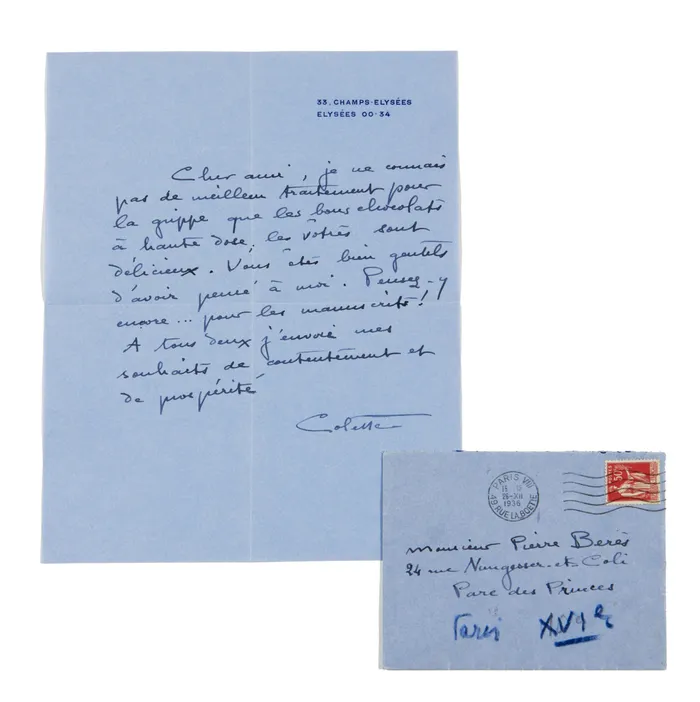 33, CHAMPS-ELYSÉES
ELYSÉES 00-34
Cher ami, je ne connais
pas de meilleur traitement pour
la grippe que les bons chocolats
à haute dose, les vôtres sont
délicieux. Vous êtes bien gentils
d'avoir pensé à moi. Pensez-y
encore... pour les manuscrits!
A tous deux j'envoie mes
souhaits de contentement et
de prospérité
Colette
PARIS VIII
1936
49 RUE LA BOETIE
50c
Monsieur Pierre Berès
24 rue Nungesser-et Coli
Parc des Princes
Paris XVIe